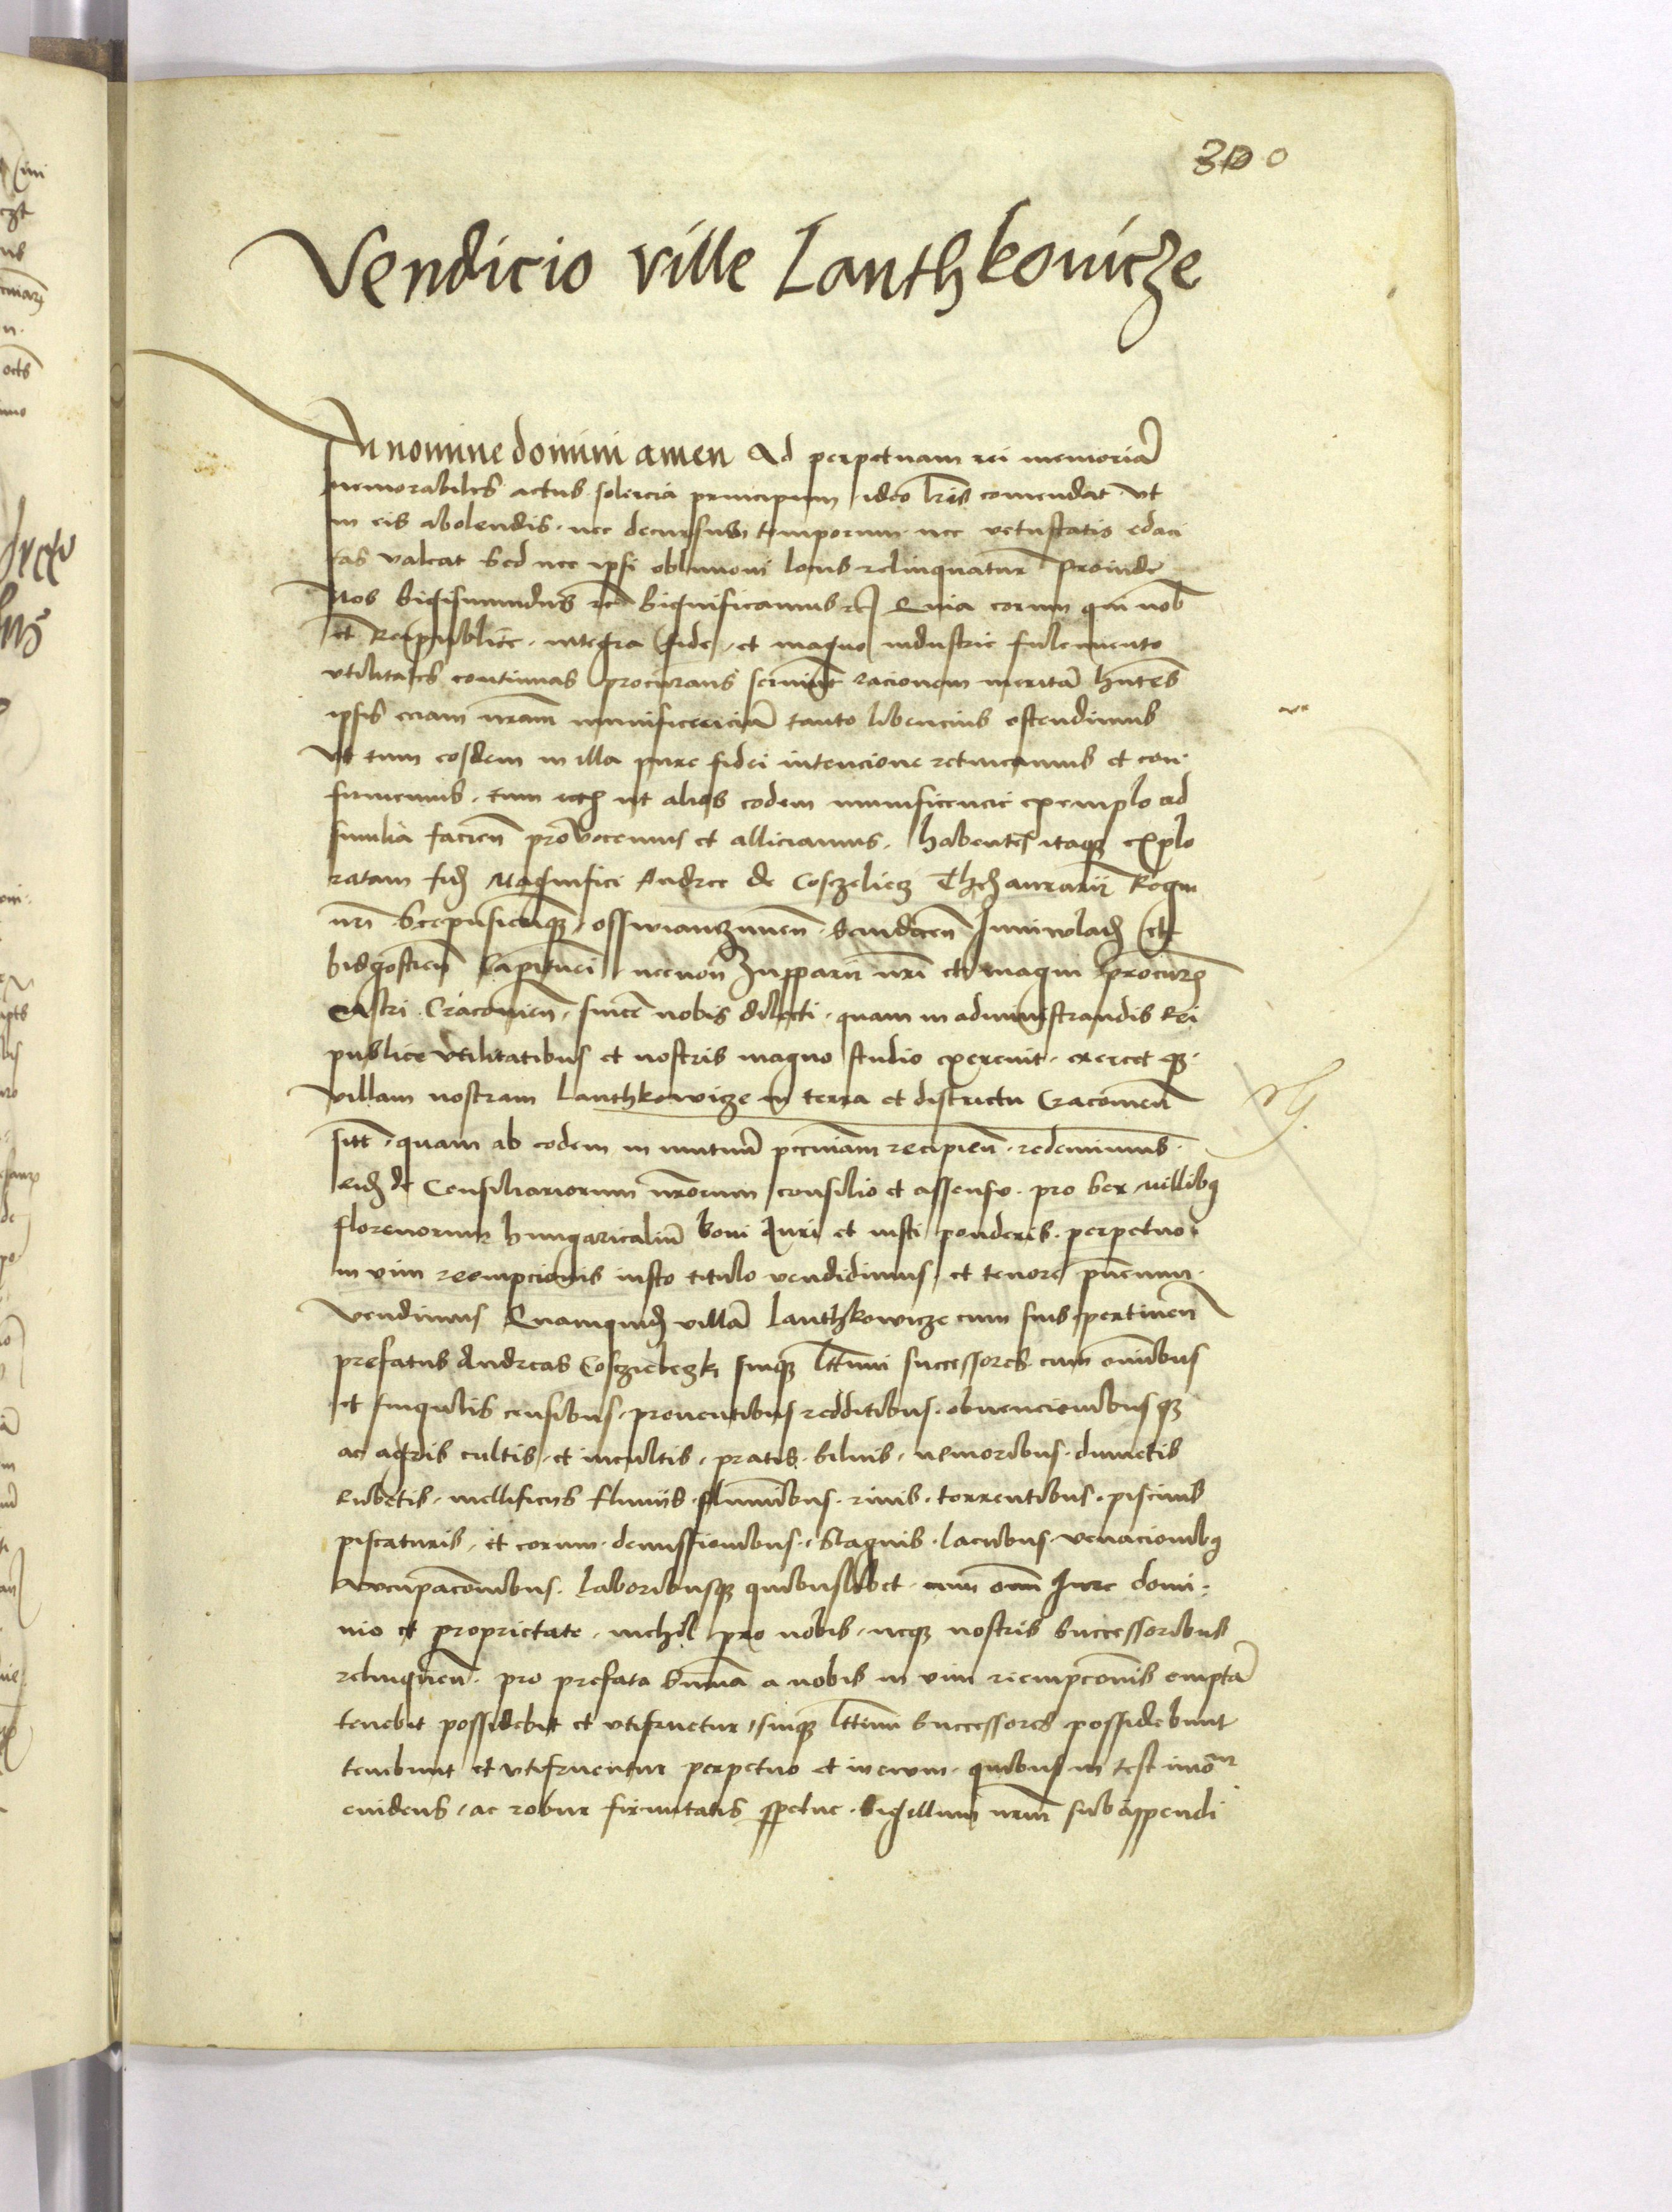 300
Vendicio ville Lanthkovicze
In nomine domini amen Ad perpetuam rei memoriā
memorabiles actus solercia principum ideo lris comendat vt
in eis abolendis · nec decursus temporum · nec vetustatis edaci
tas valeat Sed nec ipsi oblivioni locus relinquatur Proinde
Nos Sigismundus rc Significamus rc Quia eorum qui nob
et Reipublice · integra fide · et magno industrie fulcimento
vtilitates continuas procurans seruiūt racionem meritā hntes
ipsis eciam nram munificenciā tanto libencius ostendimus
Vt tum eosdem in illa pure fidei intencione retineamus et con·
firmemus · tum ut alios eodem munificencie exemplo ad
similia facien provocemus et alliciamus · habentes itaqz explo
ratam fidē Magnifici Andree de Cosczelecz Thezaurarii Regni
nri Scepusiensiqz · osswianczimen · Sandecen Juniwladē et
bidgostien Capitanei necnon Zupparii nri et magni procurꝭ
castri Cracovien · sincē nobis dilecti · quam in administrandis Rei
publice vtilitatibus et nostris magno studio exercuit · exercetqz ·
villam nostram Lanthkowicze in terra et districtu Cracovien
sitt · quam ab eodem in mutuū pecuniam recipien · redemimus ·
eidē de Consiliariorum nrorum consilio et assensu · pro sex millibꝫ
florenorum hungaricaliū boni Auri et iusti ponderis · perpetuo
in vim reempcionis iusto titulo vendidimus et tenore pntium ·
vendimus Quamquidē villā Lanthkowicze cum suis pertinen
prefatus Andreas Cosczieleczki suiqz lttimi successores cum omibus
et singulis censibus · proventibus redditibus · obvencionibusqz
ac agris cultis · et incultis · pratis · silvis · nemoribus · dumetis
Rubetis · mellificiis fluviis · fluminibus · rivis · torrentibus · piscinis
piscaturis · et eorum · demissionibus · Stagnis · lacubus · venacionibꝫ
aucupacōnibus · laboribusqz quibuslibet · cum omi Jure domi·
nio et proprietate · nichil pro nobis · neqz nostris Successoribus
relinquen · pro prefata summa a nobis in vim reempcōnis emptā
tenebit possidebit et vtifruetur · suiqz lttimi Successores possidebunt
tenebunt et vtifruentur perpetuo et in evum · quibus in testimōm
evidens · ac robur firmitatis ppetue · Sigillum nrm subappendi